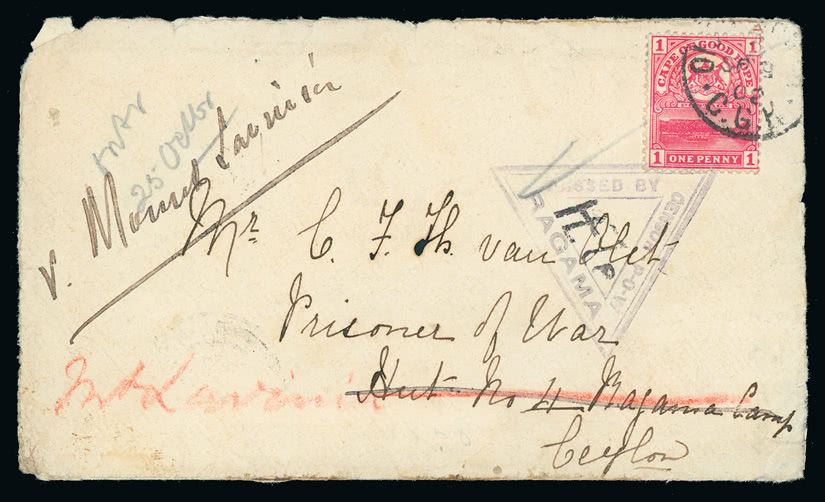 1 CAPE OF GOOD HOPE 1
1 ONE PENNY 1
O.C.G.H.
02
PASSED BY
CENSOR P-O-W
RAGAMA
25 Octbr
v. Mount Lavinia
Mr C. F. Th. van
Prisoner of War
Hut No 4 Ragama Camp
Mt Lavinia
Ceylon